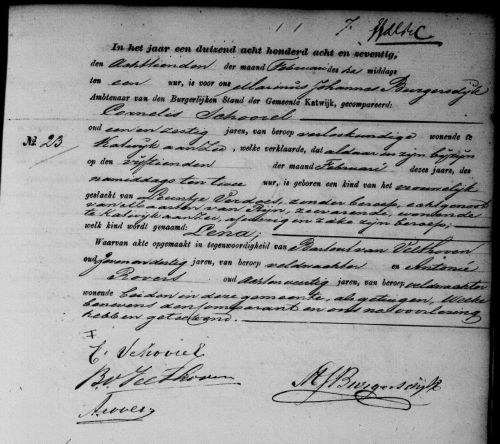 7.
In het jaar een duizend acht honderd acht en zeventig,
den Achttienden der maand Februari des na middags
ten een uur, is voor ons Marinus Johannes Burgersdijk
Ambtenaar van den Burgerlijken Stand der Gemeente Katwijk, gecompareerd:
Cornelis Schoviel
No. 23 oud een en zestig jaren, van beroep verloskundige wonende te
Katwijk aan Zee, welke verklaarde, dat aldaar in zijn bijzijn
op den vijftienden der maand Februari dezes jaars, des
namiddags ten twee uur, is geboren een kind van het vrouwelijk
geslacht van Leuntje Verdoes, zonder beroep, echtgenoot
van van Rijn, zeevarende, wonende
te Katwijk aan Zee,
welk kind wordt genaamd: Lena;
Waarvan akte opgemaakt in tegenwoordigheid van van Velthoven
oud jaren, van beroep veldwachter en Antonie
Rovers oud acht en veertig jaren, van beroep veldwachter
wonende beiden in deze gemeente, als getuigen, welke
benevens den comparant en ons na voorlezing
hebben geteekend.
C. Schoviel
B. v. Velthoven
MJBurgersdijk
A. Rovers